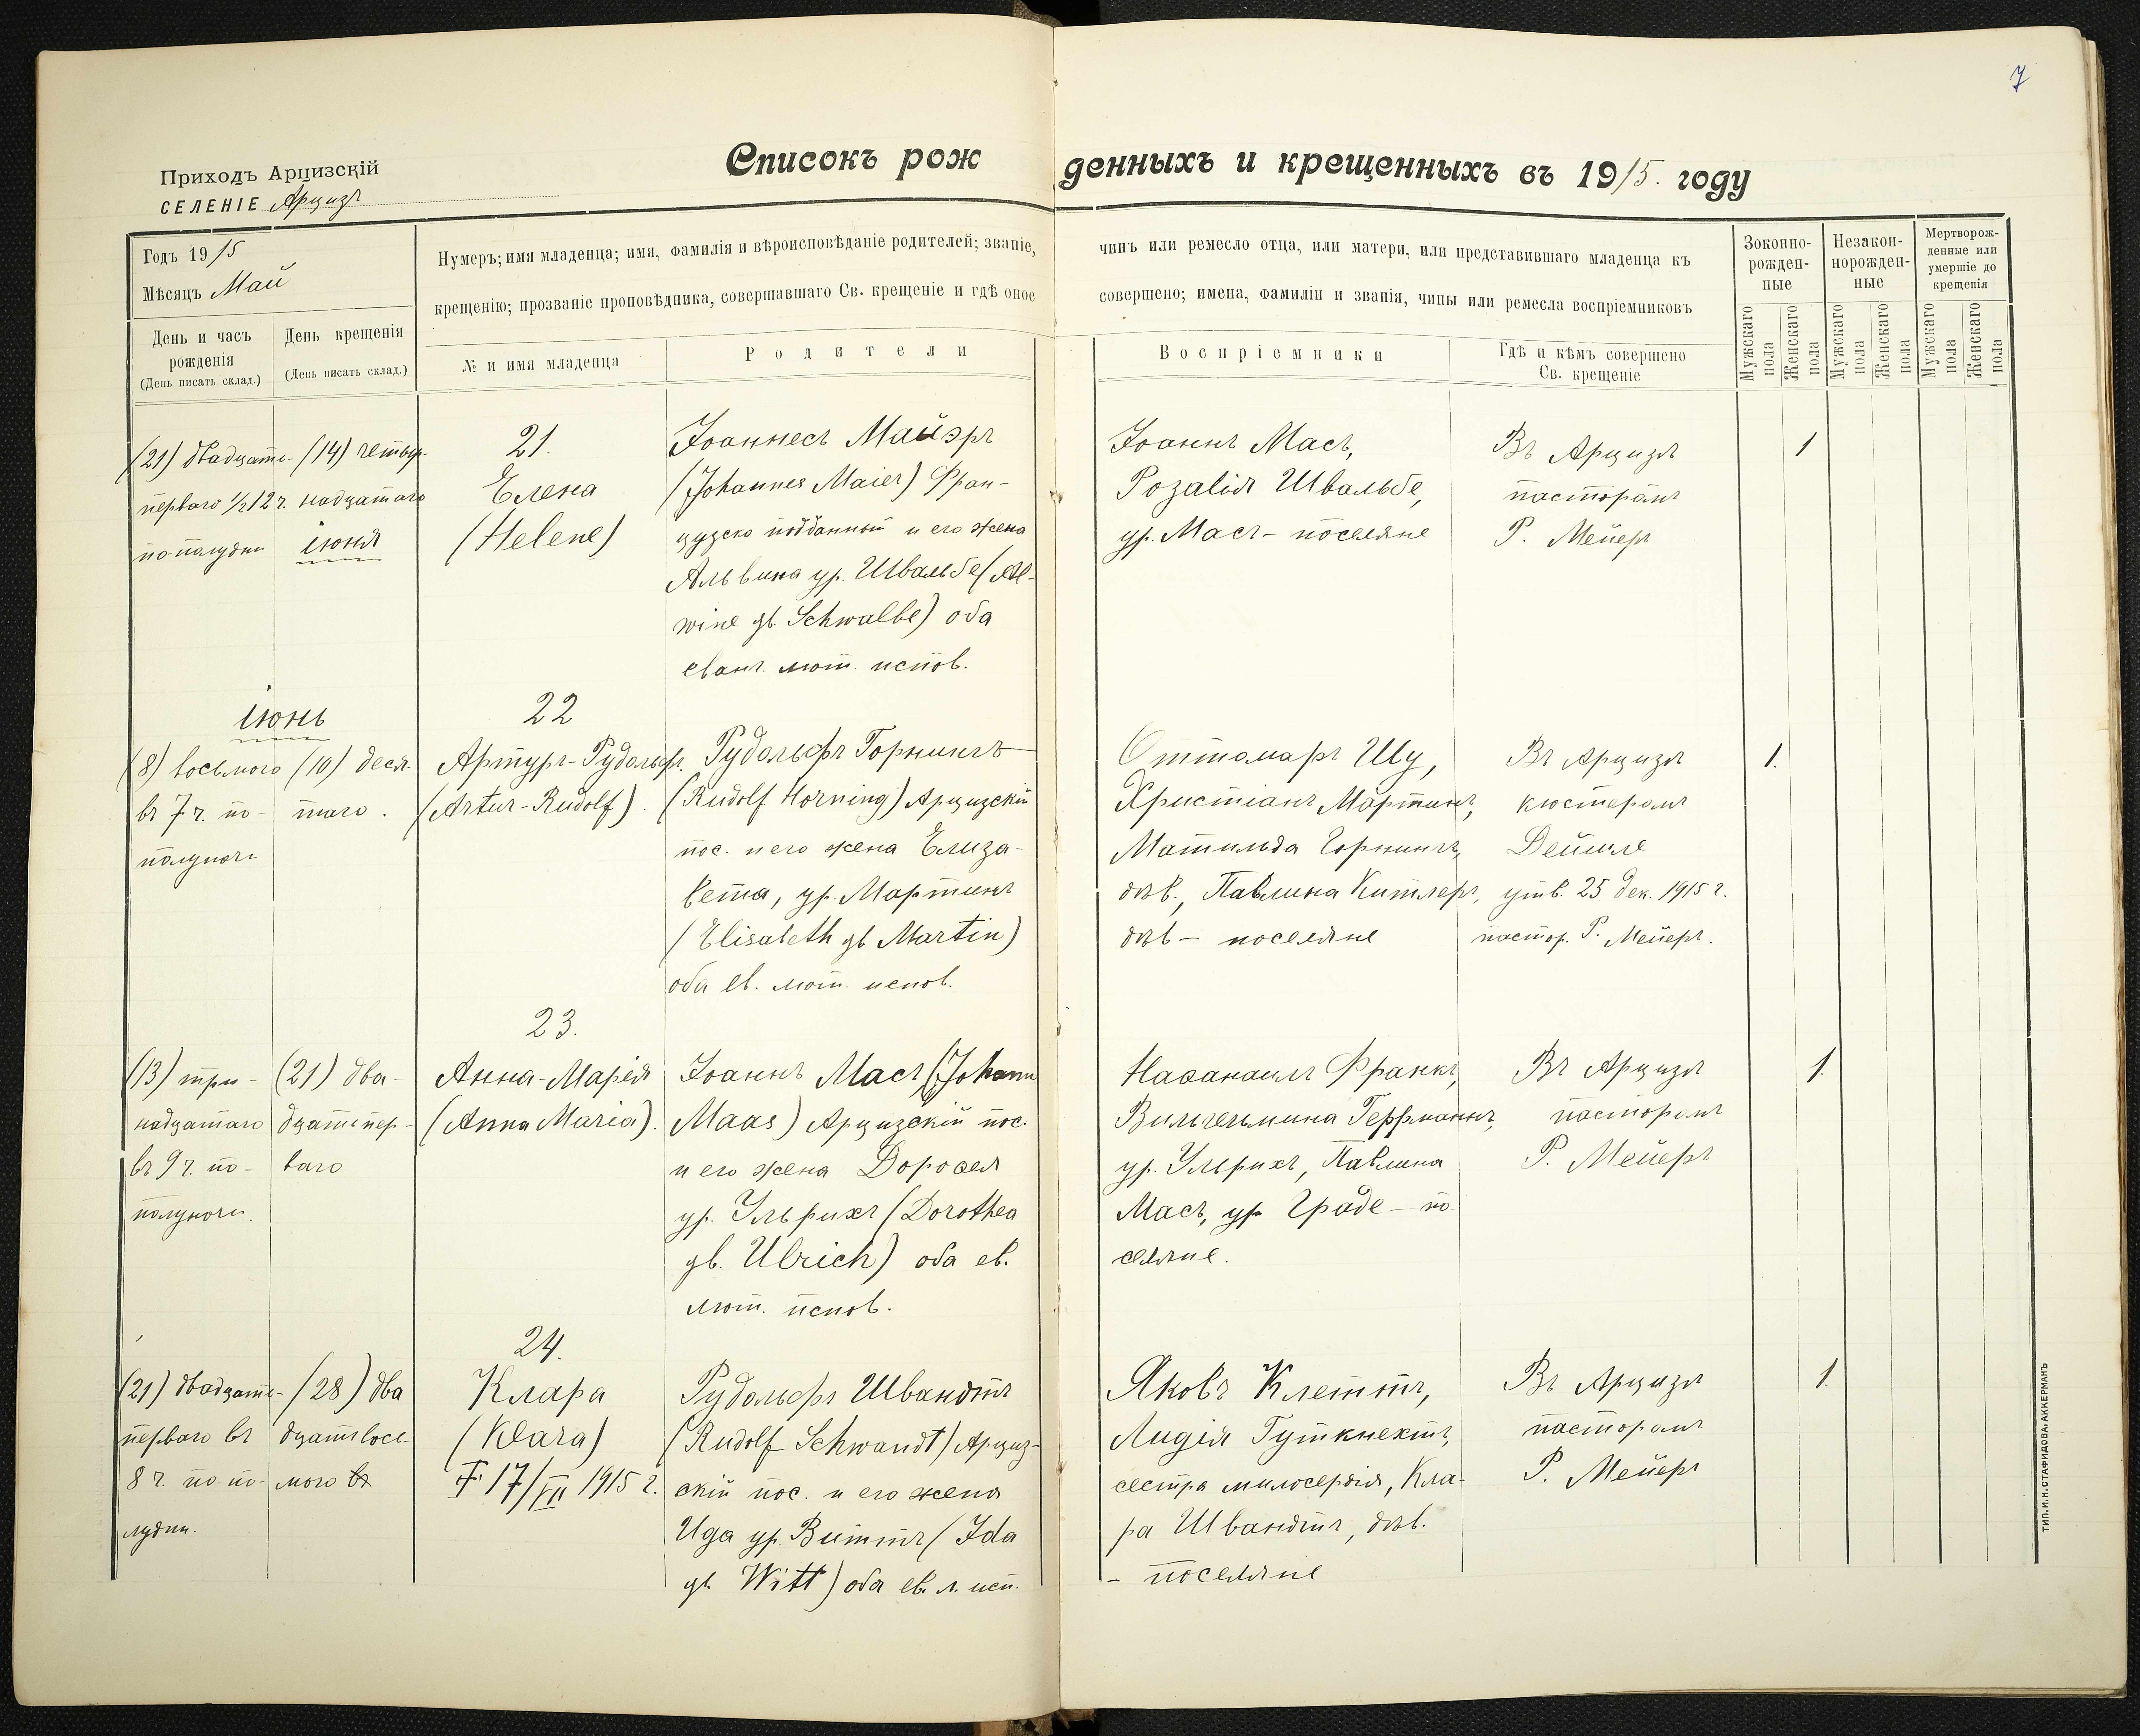 7
Приходъ Арцизскій
СЕЛЕНІЕ Арцизъ
Списокъ рож денныхъ и крещенныхъ въ 1915. году
Годъ 1915
Мѣсяцъ Май
Нумеръ; имя младенца; имя, фамилія и вѣроисповѣданіе родителей; званіе, чинъ или ремесло отца, или матери, или представившаго младенца къ
крещенію; прозваніе проповѣдника, совершавшаго Св. крещеніе и гдѣ оное совершено; имена, фамиліи и званія, чины или ремесла воспріемниковъ
День и часъ
рожденія
(День писать склад.)
День крещенія
(День писать склад.)
№ и имя младенца
Родители
Воспріемники
Гдѣ и кѣмъ совершено
Св. крещеніе
Зоконно-
рожден-
ные
Незакон-
норожден-
ные
Мертворож-
денные или
умершіе до
крещенія
Мужскаго
пола
Женскаго
пола
Мужскаго
пола
Женскаго
пола
Мужскаго
пола
Женскаго
пола
(21) двадцать-
перваго 1/2 12 ч.
пополудни
(14) четыр-
надцатаго
іюня
21.
Елена
(Helene)
Іоаннесъ Майэръ
(Johannes Maier) Фран-
цузско подданный и его жена
Альвина ур. Швальбе (Al-
wine gb. Schwalbe) оба
еванг. лют. испов.
Іоаннъ Масъ,
Розалія Швальбе,
ур. Масъ - поселяне
Въ Арцизѣ
пасторомъ
Р. Мейеръ
1
іюнь
(8) восьмого
въ 7 ч. по-
полуночи
(10) деся-
таго.
22
Артуръ-Рудольфъ.
(Artur-Rudolf).
Рудольфъ Горнингъ
(Rudolf Horning) Арцизскій
пос. и его жена Елиза-
вета, ур. Мартинъ
(Elisabeth gb Martin)
оба ев. лют. испов.
Оттомаръ Шу,
Христіанъ Мартинъ,
Матильда Горнингъ,
дѣв., Павлина Китлеръ,
дѣв - поселяне
Въ Арцизѣ
кюстеромъ
Дейиле
утв. 25 дек. 1915 г.
пастор. Р. Мейеръ.
1.
(13) три-
надцатаго
въ 9 ч. по-
полуночи.
(21) два-
дцатьпер-
ваго
23.
Анна-Марія
(Anna Maria).
Іоаннъ Масъ (Johann
Maas) Арцизскій пос.
и его жена Доровея
ур. Ульрихъ (Dorothea
gb. Ulrich) оба ев.
лют. испов.
Наѳанаилъ Франкъ,
Вильгельмина Геррманнъ,
ур. Ульрихъ, Павлина
Масъ, ур Граде - по-
селяне.
Въ Арцизѣ
пасторомъ
Р. Мейеръ
1.
(21) двадцать-
перваго въ
8 ч. по по-
лудни.
(28) два
дцатьвось-
мого въ
24.
Клара
(Klara)
† 17/VII 1915 г.
Рудольфъ Швандтъ
(Rudolf Schwandt) Арциз-
скій пос. и его жена
Ида ур. Виттъ (Ida
gb. Witt) оба ев. л. исп.
Яковъ Клеттъ,
Лидія Гуткнехтъ,
сестра милосердія, Кла-
ра Швандтъ, дѣв.
- поселяне
Въ Арцизѣ
пасторомъ
Р. Мейеръ
1.
ТИП. И. Н. СТАФИДОВА, АККЕРМАНЪ